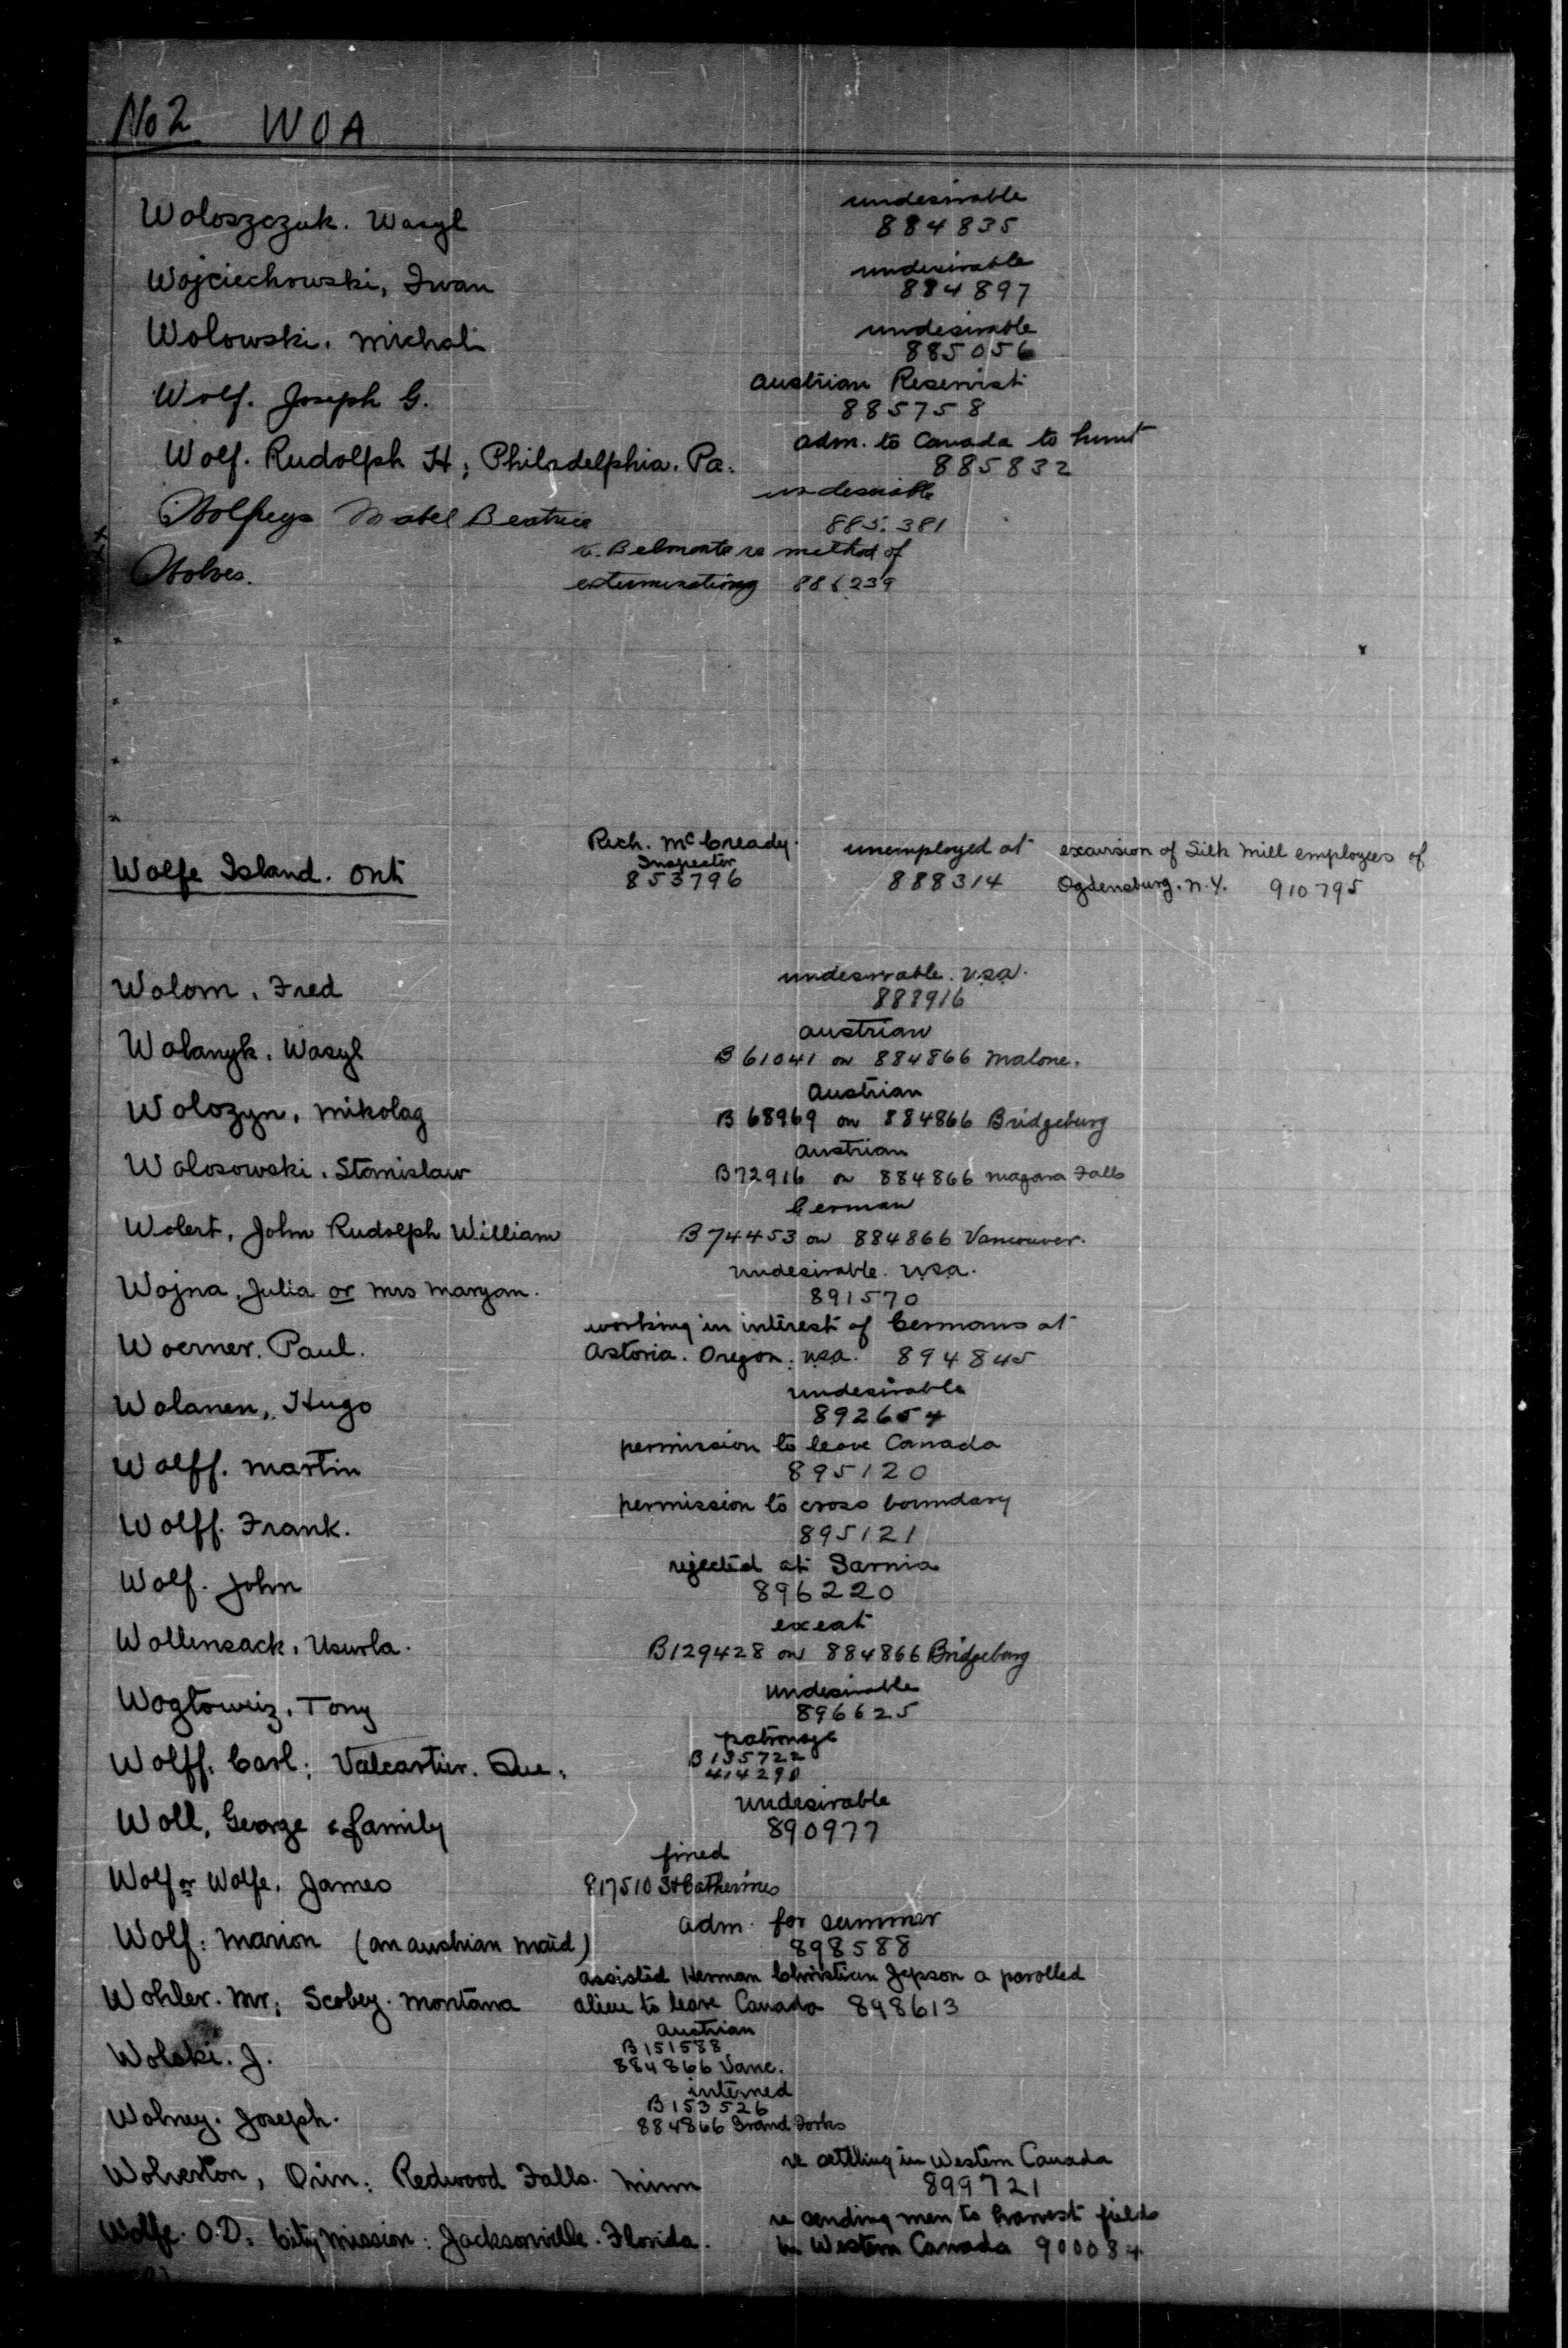 No 2 WOA
undesirable
Woloszczuk. Wasyl 884835
undesirable
Wojciechowski, Iwan 884897
undesirable
Wolowski. Michali 885056
Austrian Reservist
Wolf. Joseph G. 885758
adm. to Canada to hunt
Wolf. Rudolph H; Philadelphia. Pa. 885832
undesirable
Wolfreys Mabel Beatrice 885.381
v. Belmonte re method of
Wolves. exterminating 886239
Rich. McCready. unemployed at excursion of Silk Mill employees of
Inspector
Wolfe Island. Ont 853796 888314 Ogdensburg. N.Y. 910795
undesirable. USA.
Wolom. Fred 888916
Austrian
Wolanyk. Wasyl B 61041 on 884866 Malone.
Austrian
Wolozyn, Mikolag B 68969 on 884866 Bridgeburg
Austrian
Wolosowski. Stanislaw B72916 on 884866 Niagara Falls
German
Wolert, John Rudolph William B 74453 on 884866 Vancouver.
undesirable. USA.
Wojna, Julia or Mrs Maryan. 891570
working in interest of Germans at
Woerner. Paul. Astoria. Oregon. USA. 894845
undesirable
Wolanen, Hugo 892654
permission to leave Canada
Wolff. Martin 895120
permission to cross boundary
Wolff. Frank. 895121
rejected at Sarnia
Wolf. John 896220
exeat
Wollensack, Usurla. B129428 on 884866 Bridgeburg
undesirable
Wogtowiz, Tony 896625
patronage
Wolff. Carl; Valcartier. Que. B135722
414290
undesirable
Woll, George & family 890977
fined
Wolf or Wolfe, James 817510 St Catherines
adm. for summer
Wolf. Marion (an austrian maid) 898588
assisted Herman Christian Jepson a parolled
Wohler. Mr; Scobey. Montana alien to leave Canada 898613
Austrian
B151588
Wolski. J. 884866 Vanc.
interned
B153526
Wolney. Joseph. 884866 Grand Forks
re settling in Western Canada
Wolverton, Orin; Redwood Falls. Minn 899721
re sending men to harvest fields
Wolfe. O.D. City Mission: Jacksonville. Florida. in Western Canada 900084